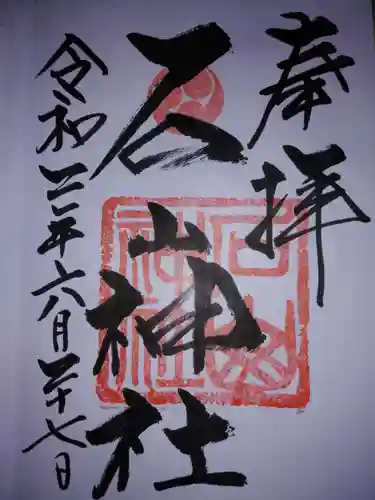 奉拝
石山神社
令和二年六月二十七日